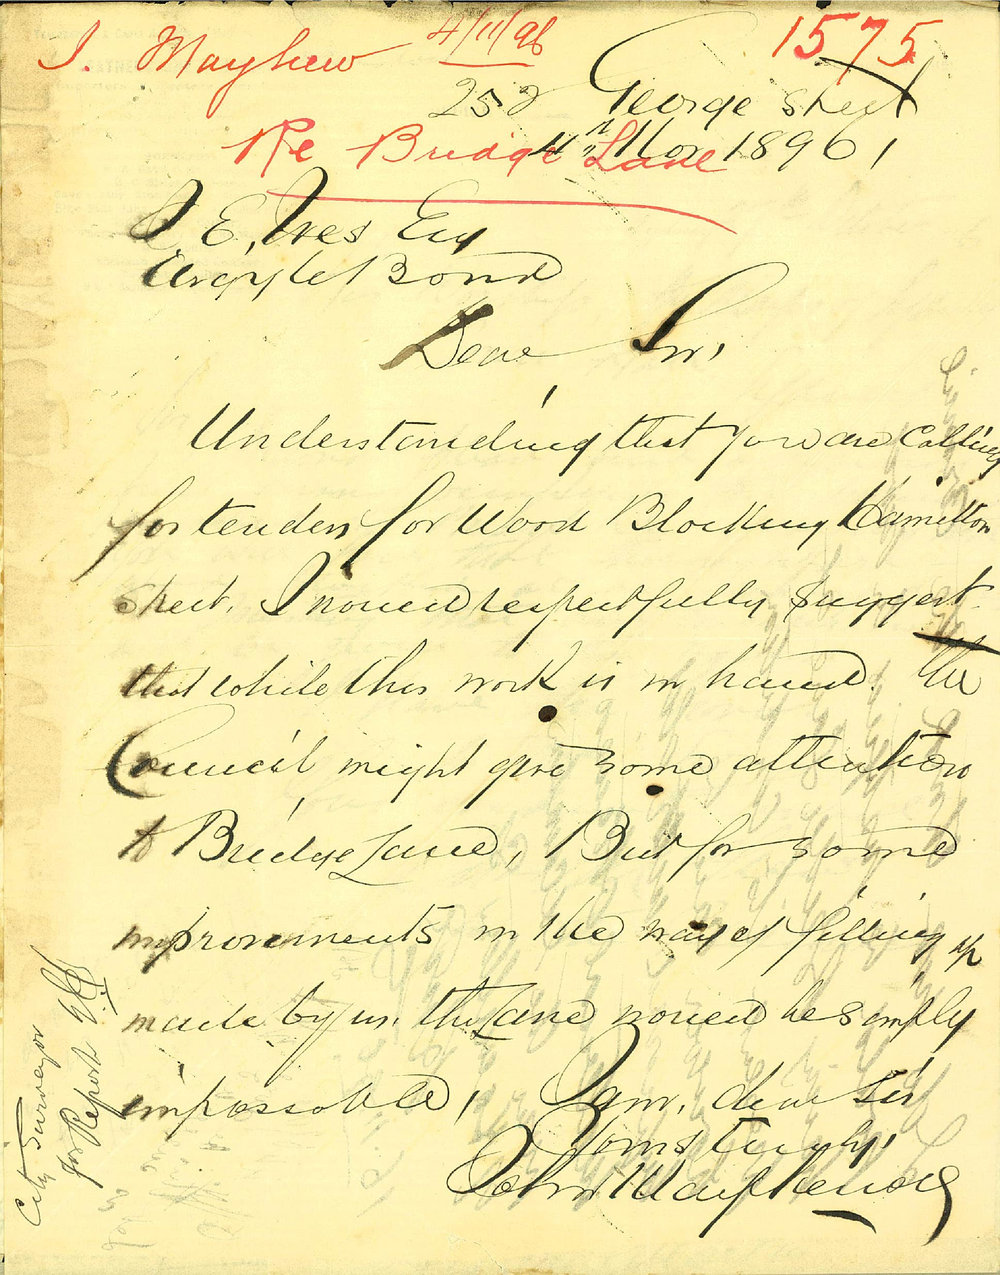 J. Mayhew 4/11/96 1575
252 George Street
Re Bridge Lane
4th Nov 1896
I E, Ives Esq
Argyle Bond
Dear Sir,
Understanding that you are Calling
for tenders for Wood Blocking Hamilton
Street. I would respectfully suggest.
that while this work is in hand. the
Council might give some attention
to Bridge Lane, But for some
improvements in the way of filling up
made by us. the Lane would be simply
impassable, I am, dear Sir
Yours truly,
John Mayhew
City Surveyor
for Report